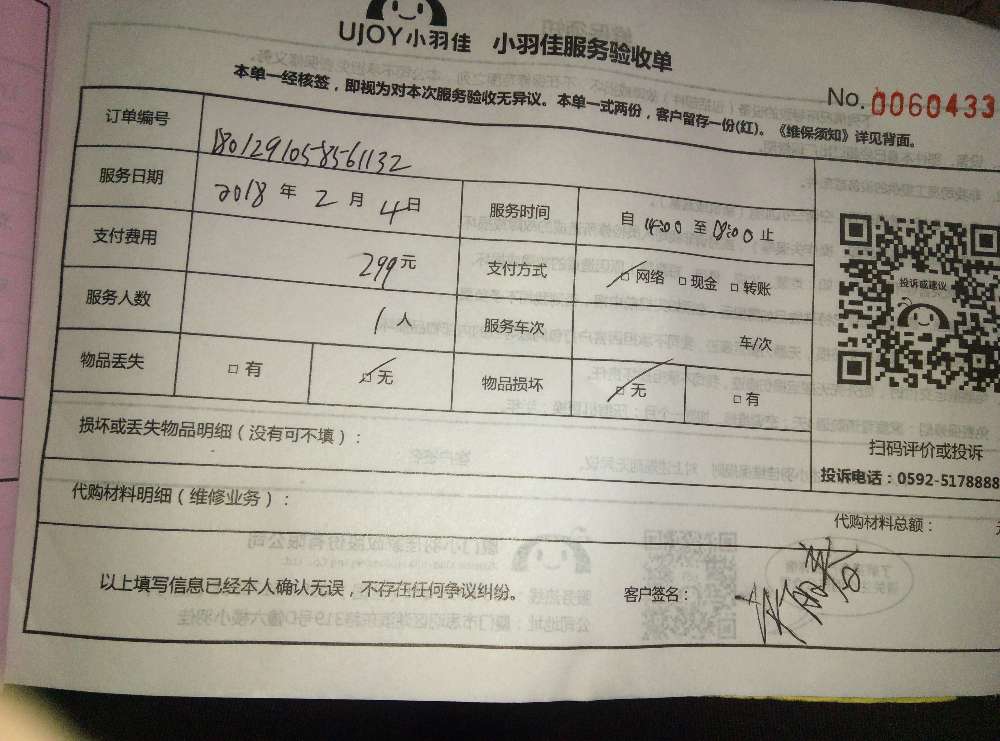 UJOY小羽佳 小羽佳服务验收单
本单一经核签，即视为对本次服务验收无异议。本单一式两份，客户留存一份(红)。《维保须知》详见背面。
No. 0060433
订单编号 1801291058561132
服务日期 2018 年 2 月 4 日 服务时间 自 14:00 至 18:00 止
支付费用 299 元 支付方式 □ 网络 □ 现金 □ 转账
服务人数 1 人 服务车次 车/次
物品丢失 □ 有 □ 无 物品损坏 □ 无 □ 有
投诉或建议
扫码评价或投诉
投诉电话：0592-5178888
损坏或丢失物品明细（没有可不填）：
代购材料明细（维修业务）：
代购材料总额：
以上填写信息已经本人确认无误，不存在任何争议纠纷。 客户签名：